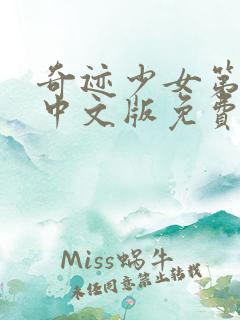 奇迹少女第
中文版免费
Miss蜗牛
未经同意禁止转载